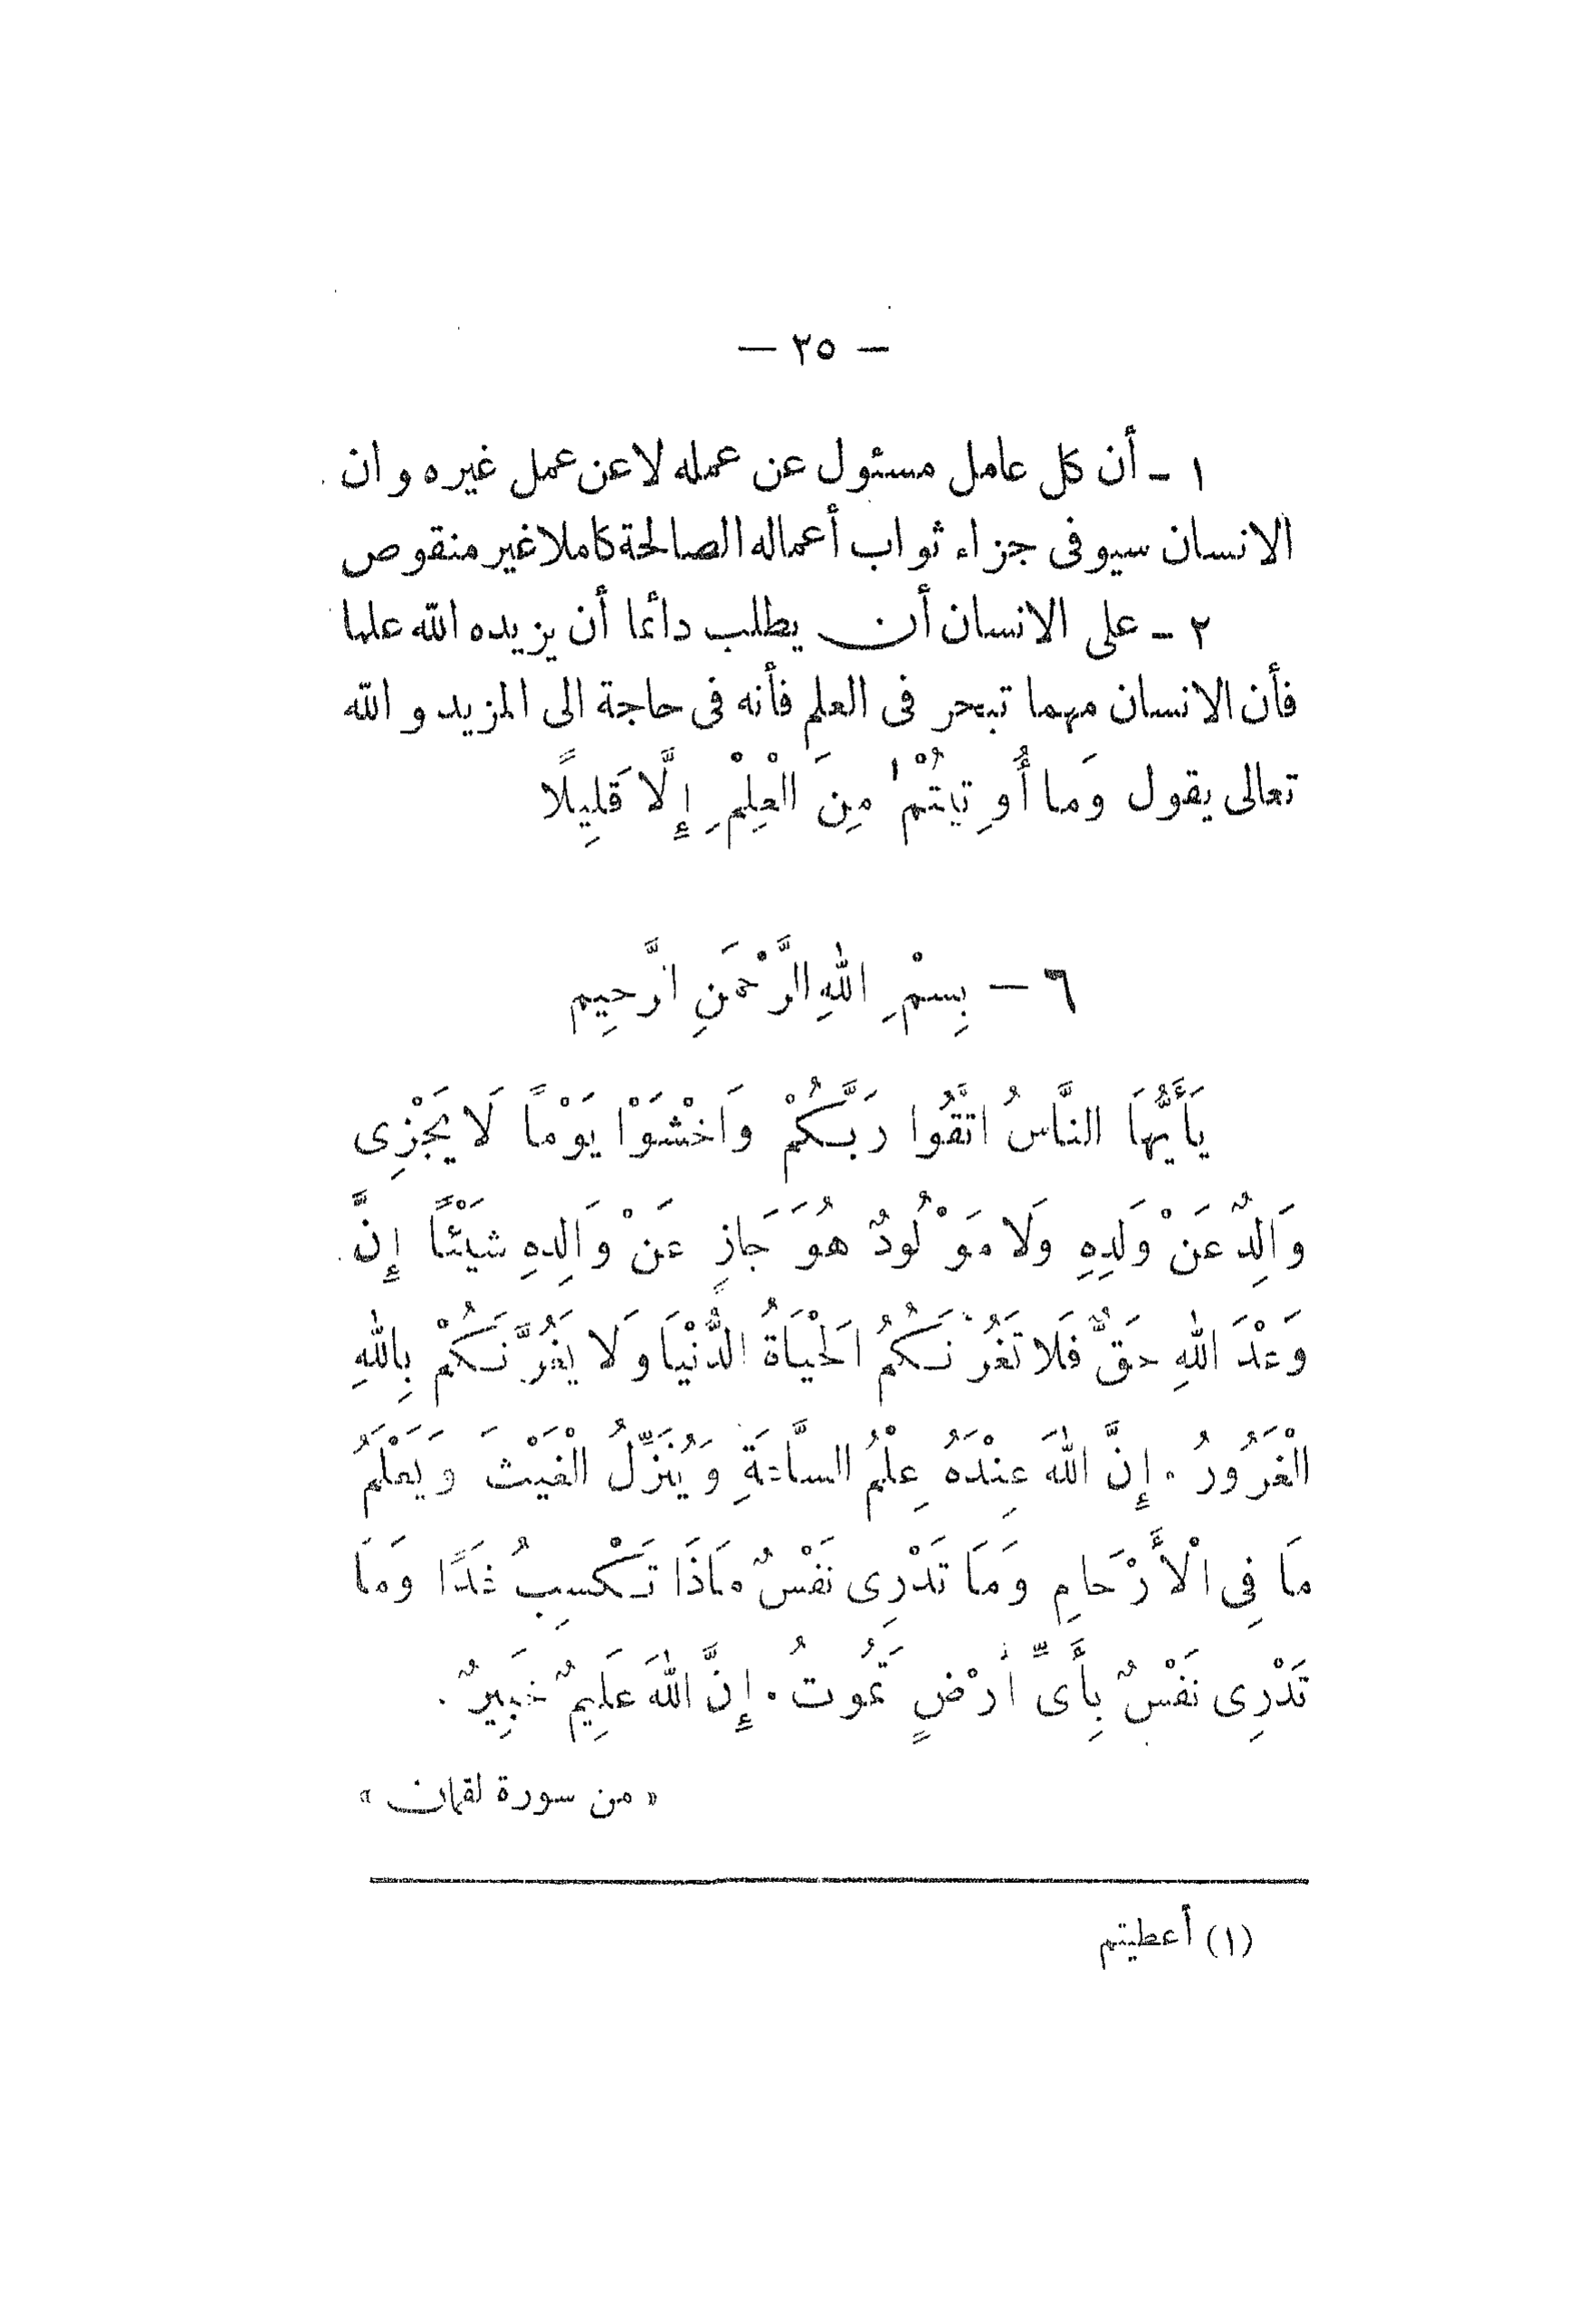 — ٢٥ —
١ - أن كل عامل مسئول عن عمله لاعن عمل غيره وان
الانسان سيوفى جزاء ثواب أعماله الصالحة كاملا غير منقوص
٢ - على الانسان أن يطلب دائما أن يزيده الله علما
فأن الانسان مهما تبحر فى العلم فأنه فى حاجة الى المزيد والله
تعالى يقول وَما أُوتِيتُمْ ١ مِنَ الْعِلْمِ إِلَّا قَلِيلًا
٦ — بِسْمِ اللهِ الرَّحْمَنِ الرَّحِيم
يَأَيُّهَا النَّاسُ اتَّقُوا رَبَّكُمْ وَاخْشَوْا يَوْماً لَا يَجْزِى
وَالِدٌ عَنْ وَلَدِهِ وَلَا مَوْلُودٌ هُوَ جَازٍ عَنْ وَالِدِهِ شَيْئًا إِنَّ
وَعْدَ اللهِ حَقٌّ فَلا تَغُرَّنَّكُمُ الْحَيَاةُ الدُّنْيَا وَلَا يَغُرَّنَّكُمْ بِاللهِ
الْغَرُورُ . إِنَّ اللهَ عِنْدَهُ عِلْمُ السَّاعَةِ وَيُنَزِّلُ الْغَيْثَ وَيَعْلَمُ
مَا فِى الْأَرْحَامِ وَمَا تَدْرِى نَفْسٌ مَاذَا تَكْسِبُ غَدًا وَمَا
تَدْرِى نَفْسٌ بِأَىِّ أَرْضٍ تَمُوتُ . إِنَّ اللهَ عَلِيمٌ خَبِيرٌ .
« من سورة لقمان »
(١) أعطيتم